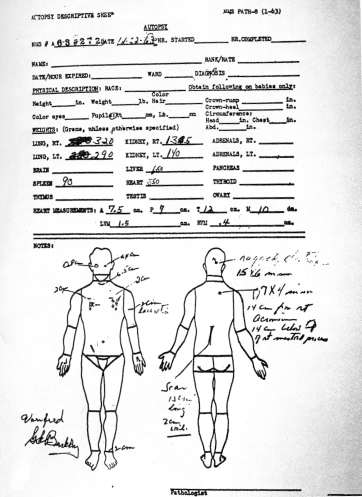 AUTOPSY DESCRIPTIVE SHEET NMS PATH-8 (1-63)
AUTOPSY
NMS # A 63 # 272 DATE 11-22-63 HR. STARTED HR. COMPLETED
NAME: RANK/RATE
DATE/HOUR EXPIRED: WARD DIAGNOSIS
PHYSICAL DESCRIPTION: RACE: Obtain following on babies only:
Color
Height in. Weight lb. Hair Crown-rump in.
Crown-heel in.
Color eyes Pupils:Rt. mm, Lt. mm Circumference:
Head in. Chest in.
WEIGHTS: (Grams, unless otherwise specified) Abd. in.
LUNG, RT. 320 KIDNEY, RT. ADRENALS, RT.
LUNG, LT. 290 KIDNEY, LT. 140 ADRENALS, LT.
BRAIN LIVER 650 PANCREAS
SPLEEN 90 HEART 350 THYROID
THYMUS TESTIS OVARY
HEART MEASUREMENTS: A 7.5 cm. P 7 cm. T 12 cm. M 10 cm.
LVM 1.5 cm. RVM .4 cm.
NOTES:
ragged
15 x 6 mm
2cm
7 X 4 mm
14 cm from rt
acromion
14 cm below tip
of rt mastoid process
Scar
Verified
GG Burkley
Pathologist